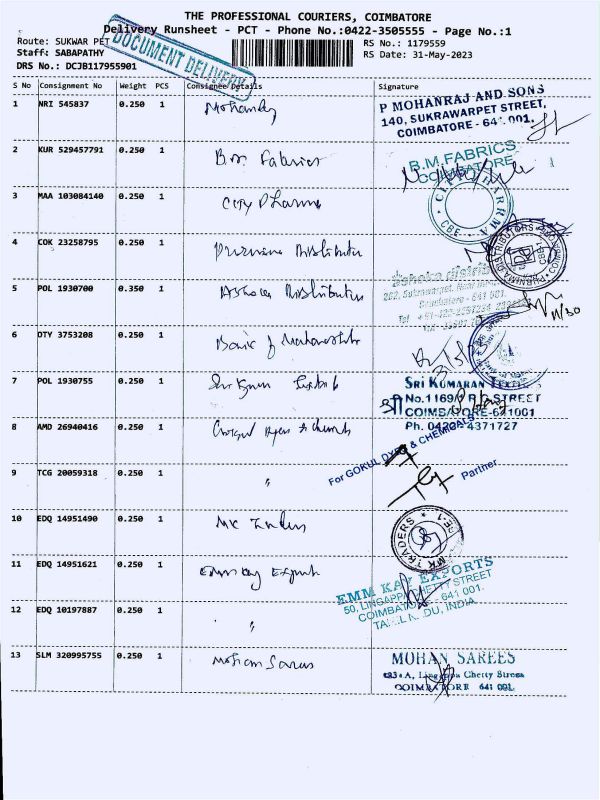 THE PROFESSIONAL COURIERS, COIMBATORE
Delivery Runsheet - PCT - Phone No.:0422-3505555 - Page No.:1
Route: SUKWAR PET
RS No.: 1179559
Staff: SABAPATHY
RS Date: 31-May-2023
DRS No.: DCJB117955901
DOCUMENT DELIVERY
S No Consignment No Weight PCS Consignee Details Signature
1 NRI 545837 0.250 1
P MOHANRAJ AND SONS
140, SUKRAWARPET STREET,
COIMBATORE - 641 001.
2 KUR 529457791 0.250 1 B.M. Fabrics
B.M.FABRICS
COIMBATORE
3 MAA 103084140 0.250 1 City Pharma
CITY PHARMA
CBE
4 COK 23258795 0.250 1
5 POL 1930700 0.350 1 Ashoka Distributors
11/30
6 DTY 3753208 0.250 1 Bank of Maharashtra
7 POL 1930755 0.250 1
SRI KUMARAN TEXTILES
COIMBATORE-641001
Ph. 0422-4371727
8 AMD 26940416 0.250 1
For GOKUL DYES & CHEMICALS
Partner
9 TCG 20059318 0.250 1 "
10 EDQ 14951490 0.250 1 MK Traders
MK TRADERS
11 EDQ 14951621 0.250 1
EMM KAY EXPORTS
50, LINGAPPA CHETTY STREET
COIMBATORE - 641 001.
TAMIL NADU, INDIA
12 EDQ 10197887 0.250 1 "
13 SLM 320995755 0.250 1 Mohan Sarees
MOHAN SAREES
Lingappa Chetty Street
COIMBATORE 641 001.